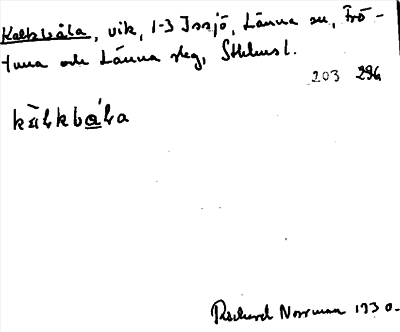 Kalkbåla, vik, 1-3 Issjö, Länna sn, Frö-
tuna och Länna slg, Sthlms l.
203 296
Richard Norrman 1930.